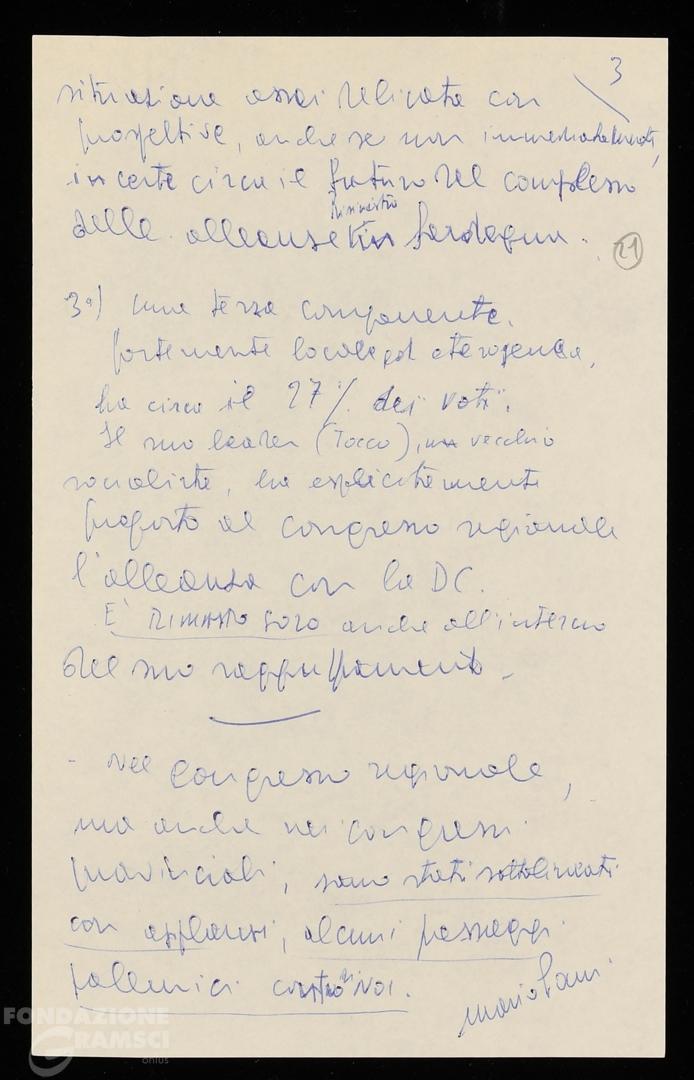 3
situazione assai delicata con
prospettive, anche se non immediatamente,
incerte circa il futuro del complesso
delle alleanze di sinistra in Sardegna.
21
3°) una terza componente,
fortemente locale ed eterogenea,
ha circa il 27% dei voti.
Il suo leader (Tocco), un vecchio
socialista, ha esplicitamente
proposto al congresso regionale
l'alleanza con la DC.
E' RIMASTO SOLO anche all'interno
del suo raggruppamento.
- Nel congresso regionale,
ma anche nei congressi
provinciali, sono stati sottolineati
con applausi, alcuni passaggi
polemici contro di NOI.
Mario Pani
FONDAZIONE
GRAMSCI
onlus